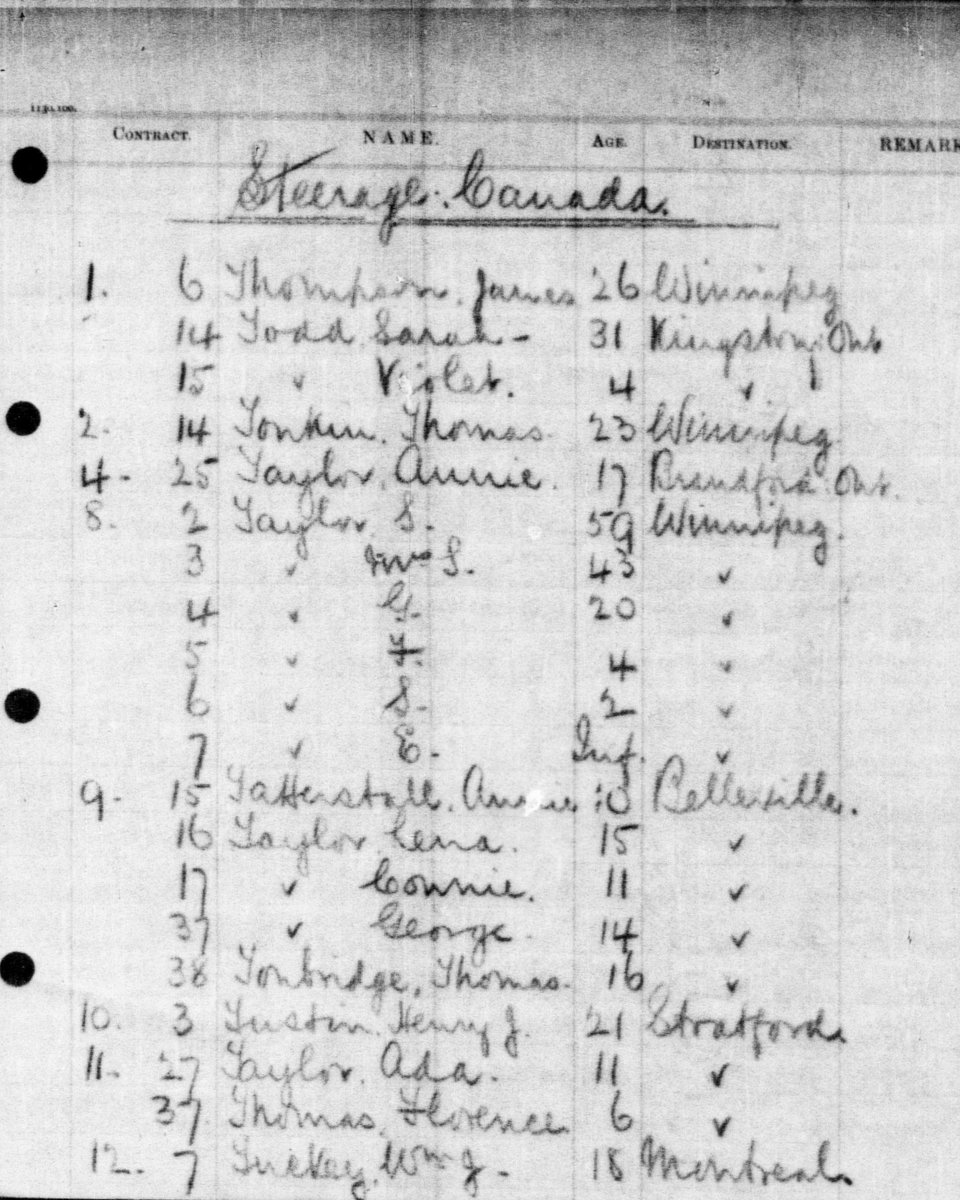 1150.100.
CONTRACT. NAME. AGE. DESTINATION. REMARK
Steerage. Canada.
1. 6 Thompson. James 26 Winnipeg
14 Todd Sarah - 31 Kingston Ont
15 " Violet. 4 "
2. 14 Tonkin. Thomas. 23 Winnipeg.
4 - 25 Taylor. Annie. 17 Brandford Ont.
8. 2 Taylor S. 59 Winnipeg.
3 " Mrs S. 43 "
4 " G. 20 "
5 " F. 4 "
6 " S- 2 "
7 " E- Inf. "
9- 15 Tatterstall. Annie Belleville.
16 Taylor Lena. 15 "
17 " Connie. 11 "
37 " George. 14 "
38 Tonbridge, Thomas. 16 "
10. 3 Tustin. Henry J. 21 Stratford
11. 27 Taylor. Ada. 11 "
37 Thomas, Florence 6 "
12. 7 Tuckey, Wm J - 18 Montreal.